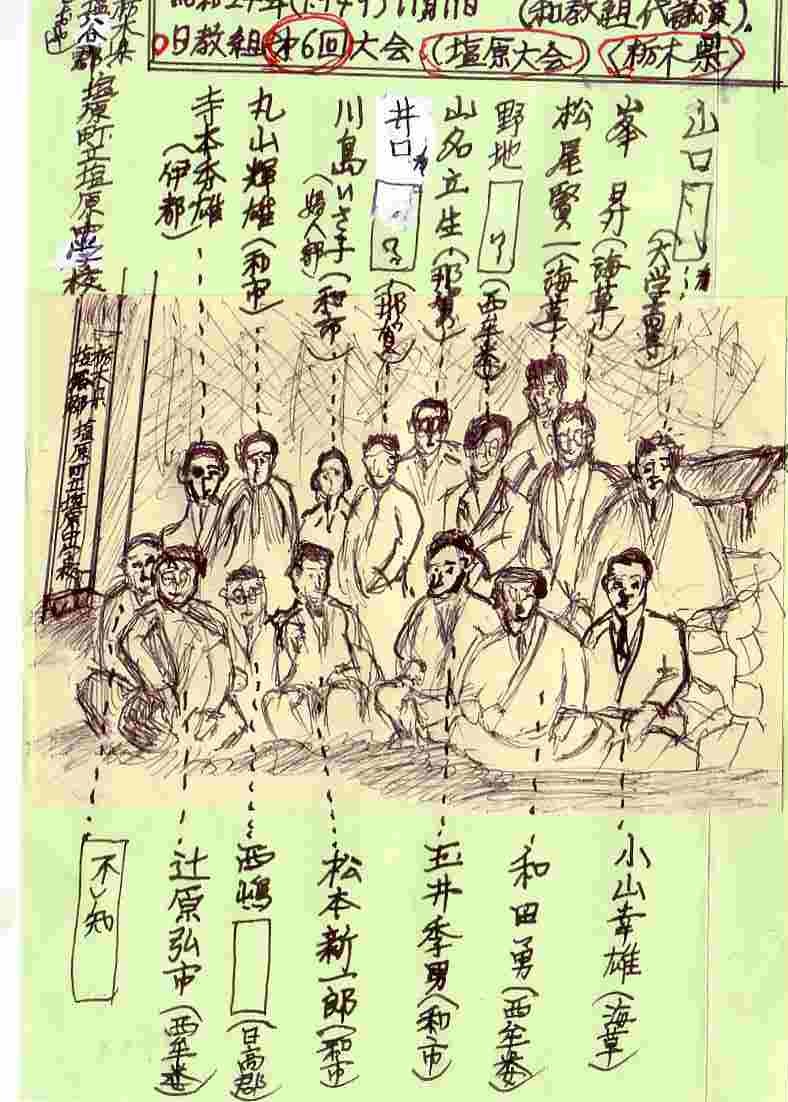 昭和24年(1949)11月11日 (和教組代議員)
日教組 第6回 大会 (塩原大会) (栃木県)
山口
(大学
峯 昇(海草)
松尾賢一(海草)
野地
(西牟婁)
山名立生(那賀)
井口
(那賀)
川島いさ子(和市)
(婦人部)
丸山輝雄(和市)
寺本秀雄
(伊都)
栃木県
塩谷郡塩原町立塩原中学校
栃木県
塩谷郡 塩原町立塩原中学校
小山幸雄(海草)
和田勇(西牟婁)
玉井季男(和市)
松本新一郎(和市)
西嶋
(日高郡)
辻原弘市(西牟婁)
不知